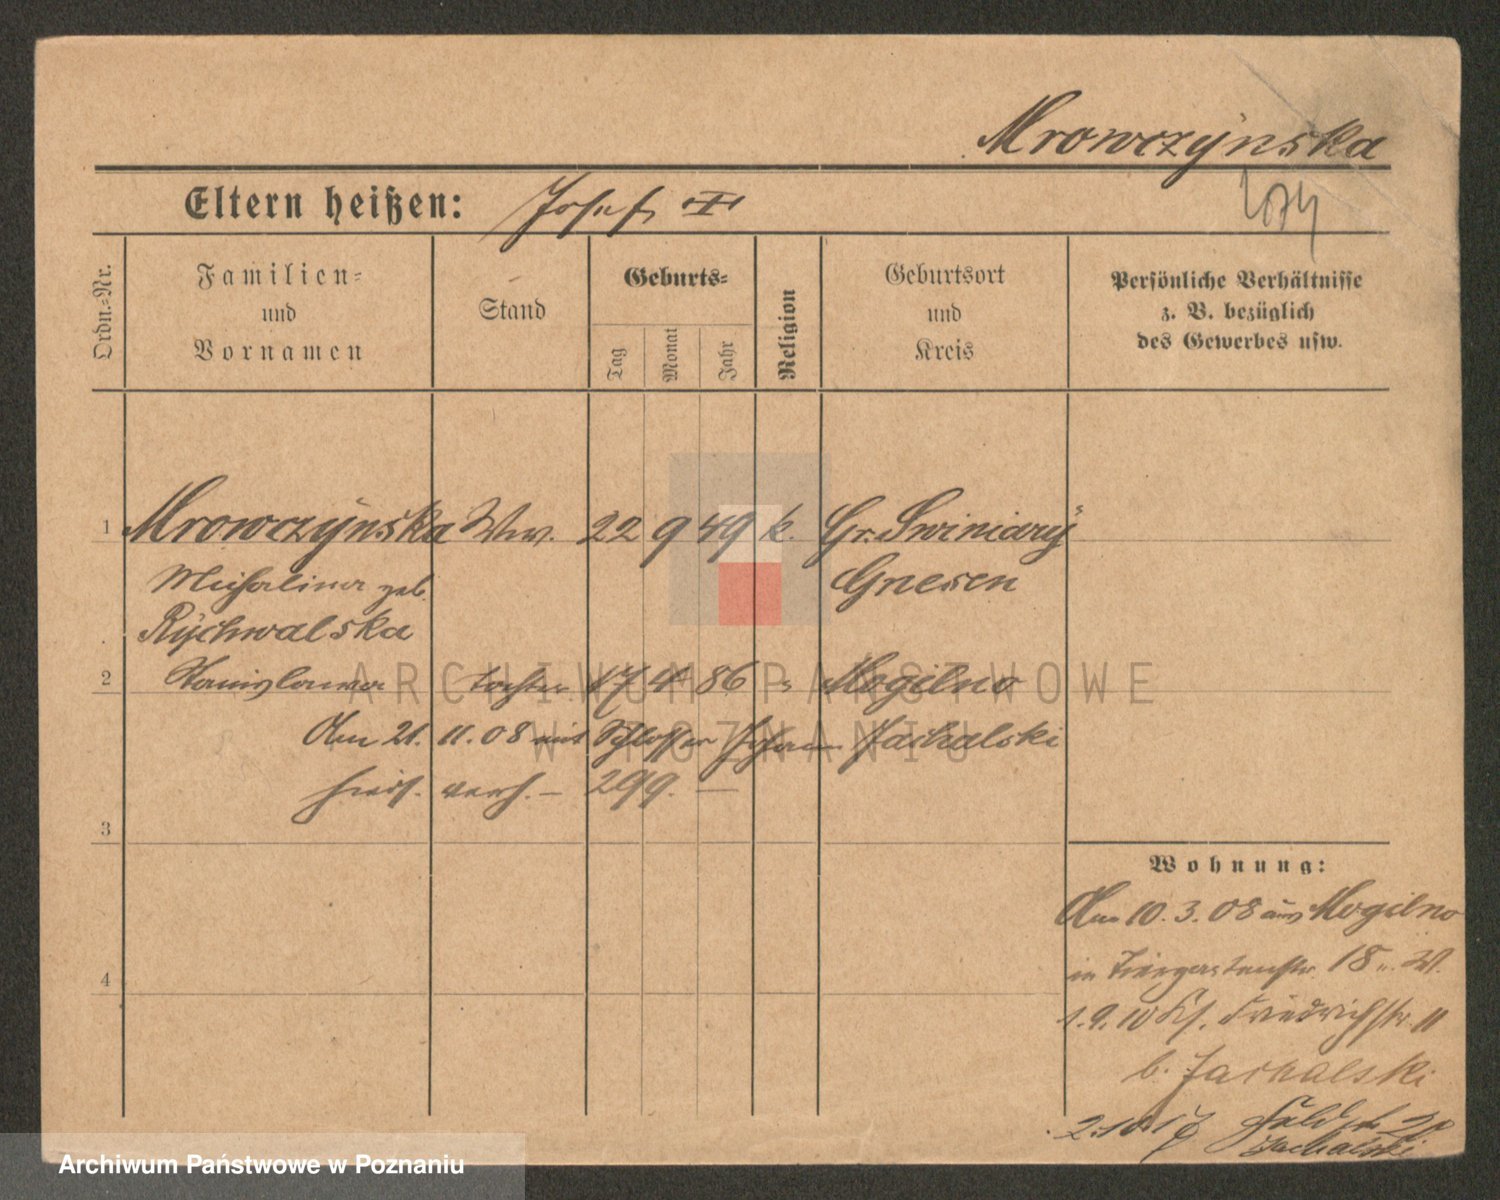 Mrowczÿnska
Eltern heißen: Josef
Ordn.-Nr.
Familien-
und
Vornamen
Stand
Geburts-
Tag
Monat
Jahr
Religion
Geburtsort
und
Kreis
Persönliche Verhältnisse
z. B. bezüglich
des Gewerbes usw.
1 Mrowczÿnska Ww. 22 9 49 k. Gr. Swiniarÿ
Michalina geb. Gnesen
Rÿchwalska
2 Stanislawa Tochter 17 4 86 " Mogilno
Am 21. 11. 08 mit Schlosser Johann Jachalski
hies. verh. – 299. —
3
4
Wohnung:
Am 10. 3. 08 aus Mogilno
in Tiergartenstr. 18 W.
1. 9. 10 Friedrichstr. 11
b. Jachalski
2.10.17 Feldst 20
Jachalski
ARCHIWUM PAŃSTWOWE
W POZNANIU
Archiwum Państwowe w Poznaniu